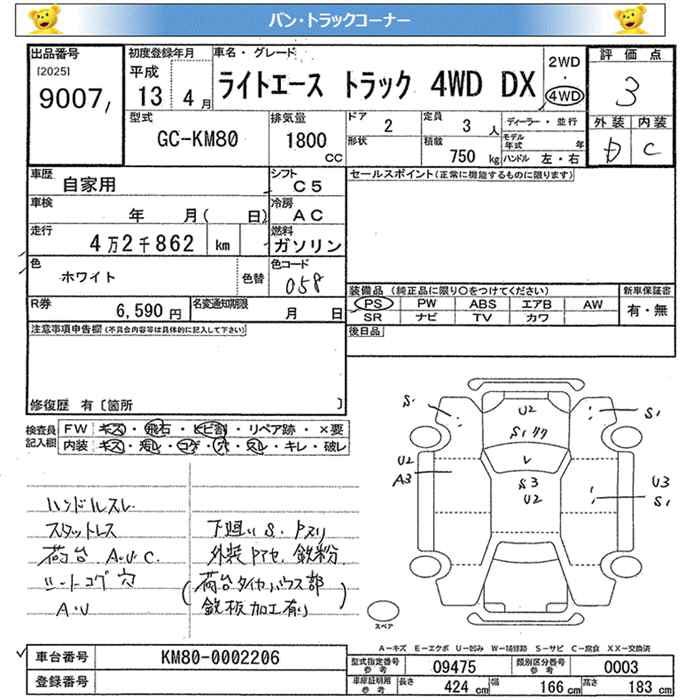 バン・トラックコーナー
出品番号
[2025]
9007,
初度登録年月
平成
13 4月
車名・グレード
ライトエース トラック 4WD DX
2WD
・
4WD
評価点
3
外装 内装
D C
型式
GC-KM80
排気量
1800
CC
ドア
2
形状
定員
3 人
積載
750 kg
ディーラー・並行
モデル
年式 年
ハンドル 左・右
車歴
自家用
シフト
C5
車検
年 月( 日)
冷房
AC
走行
4万2千862 km
燃料
ガソリン
色
ホワイト
色替
色コード
058
R券
6,590 円
名変通知期限
月 日
セールスポイント(正常に機能するものに限ります)
装備品(純正品に限り○をつけてください)
PS PW ABS エアB AW
SR ナビ TV カワ
新車保証書
有・無
後日品
注意事項申告欄(不具合内容等は具体的に記入して下さい)
修復歴 有〔箇所 〕
検査員
記入欄
FW キズ・飛石・ヒビ割・リペア跡・×要
内装 キズ・汚レ・コゲ・穴・スレ・キレ・破レ
ハンドルスレ
スタットレス
荷台 A.U.C.
シートコゲ 穴
A.U
下廻り S. Pスリ
外装 Pアセ. 鉄粉
(荷台タイヤハウス部
鉄板加工有り)
S1
U2
S1
S1
U2
A3
S3
U2
U3
S1
スペア
A-キズ E-エクボ U-凹み W-補修跡 S-サビ C-腐食 XX-交換済
車台番号
KM80-0002206
登録番号
型式指定番号
参考
09475
類別区分番号
参考
0003
車庫証明用
参考
長さ 424 cm 幅 166 cm 高さ 183 cm